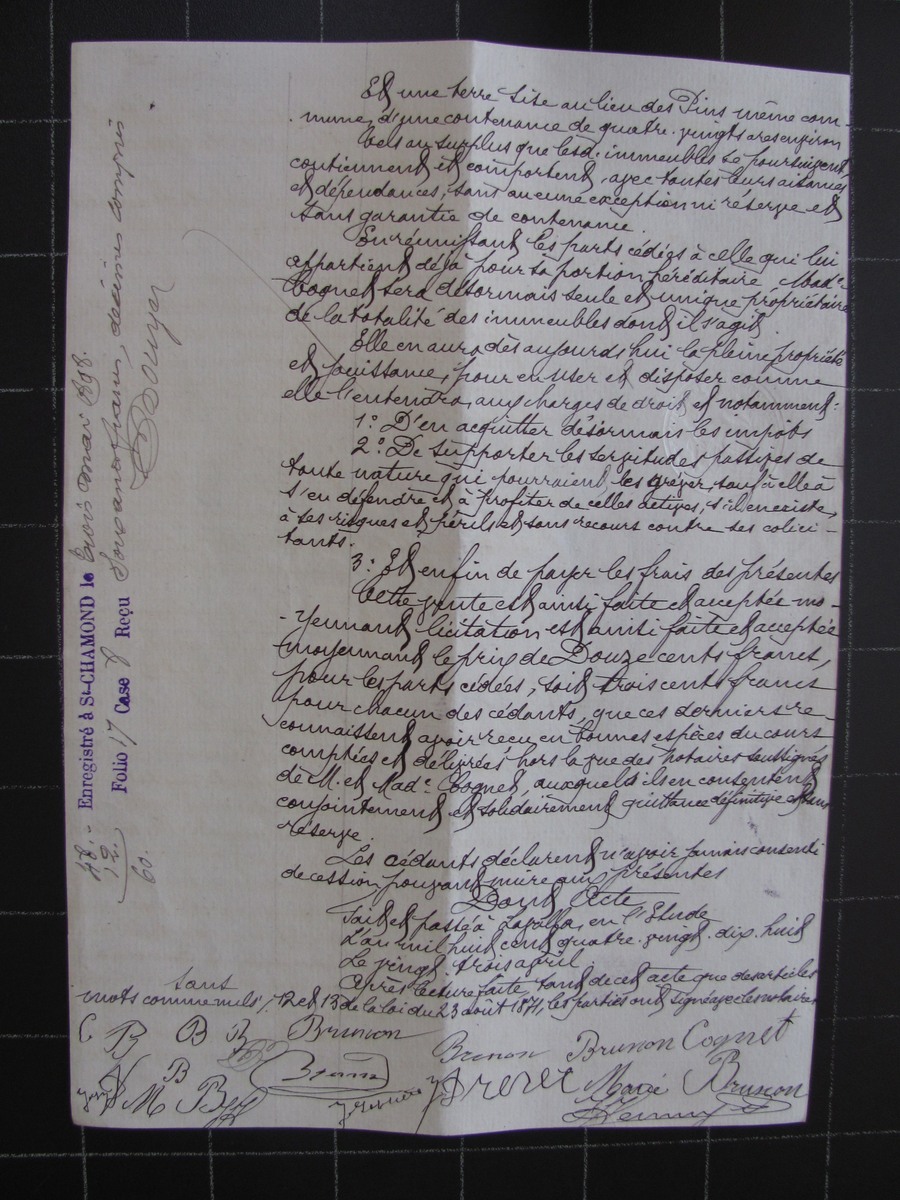 Et une terre sise au lieu des Pins même com-
mune, d'une contenance de quatre-vingts ares environ
Tels au surplus que lesd. immeubles se poursuivent,
contiennent et comportent, avec toutes leurs aisances
et dépendances, sans aucune exception ni réserve et
sans garantie de contenance.
En réunissant les parts cédées à celle qui lui
appartient déjà pour sa portion héréditaire, Made
Cognet sera désormais seule et unique propriétaire
de la totalité des immeubles dont il s'agit.
Elle en aura dès aujourd'hui la pleine propriété
et jouissance, pour en user et disposer comme
elle l'entendra, aux charges de droit et notamment:
1º D'en acquitter désormais les impôts
2º De supporter les servitudes passives de
toute nature qui pourraient les grever, sauf à elle à
s'en défendre et à profiter de celles actives, s'il en existe,
à ses risques et périls et sans recours contre ses colici-
tants.
3º Et enfin de payer les frais des présentes
Cette vente est ainsi faite et acceptée mo-
-yennant licitation est ainsi faite et acceptée
moyennant le prix de Douze cents francs,
pour les parts cédées, soit trois cents francs
pour chacun des cédants, que ces derniers re-
connaissent avoir reçu en bonnes espèces du cours
comptées et délivrées hors la vue des notaires soussignés
de M. et Made Cognet, auxquels ils en consentent
conjointement et solidairement quittance définitive et sans
réserve.
Les cédants déclarent n'avoir jamais consenti
de cession pouvant nuire aux présentes
Dont Acte
Fait et passé à Lavalla, en l'Etude
L'an mil huit cent quatre-vingt-dix-huit
Le vingt-trois avril.
Après lecture faite, tant de cet acte que des articles
12 et 13 de la loi du 23 août 1871, les parties ont signé avec les notaires
sans
mots comme nuls
C B B B Brunon
Brunon Brunon Cognet
B
M B
Marie Brunon
Enregistré à St-CHAMOND le trois mai 1898.
Folio 17 Case 8 Reçu Soixante francs, décimes compris
48.-
12.
60.